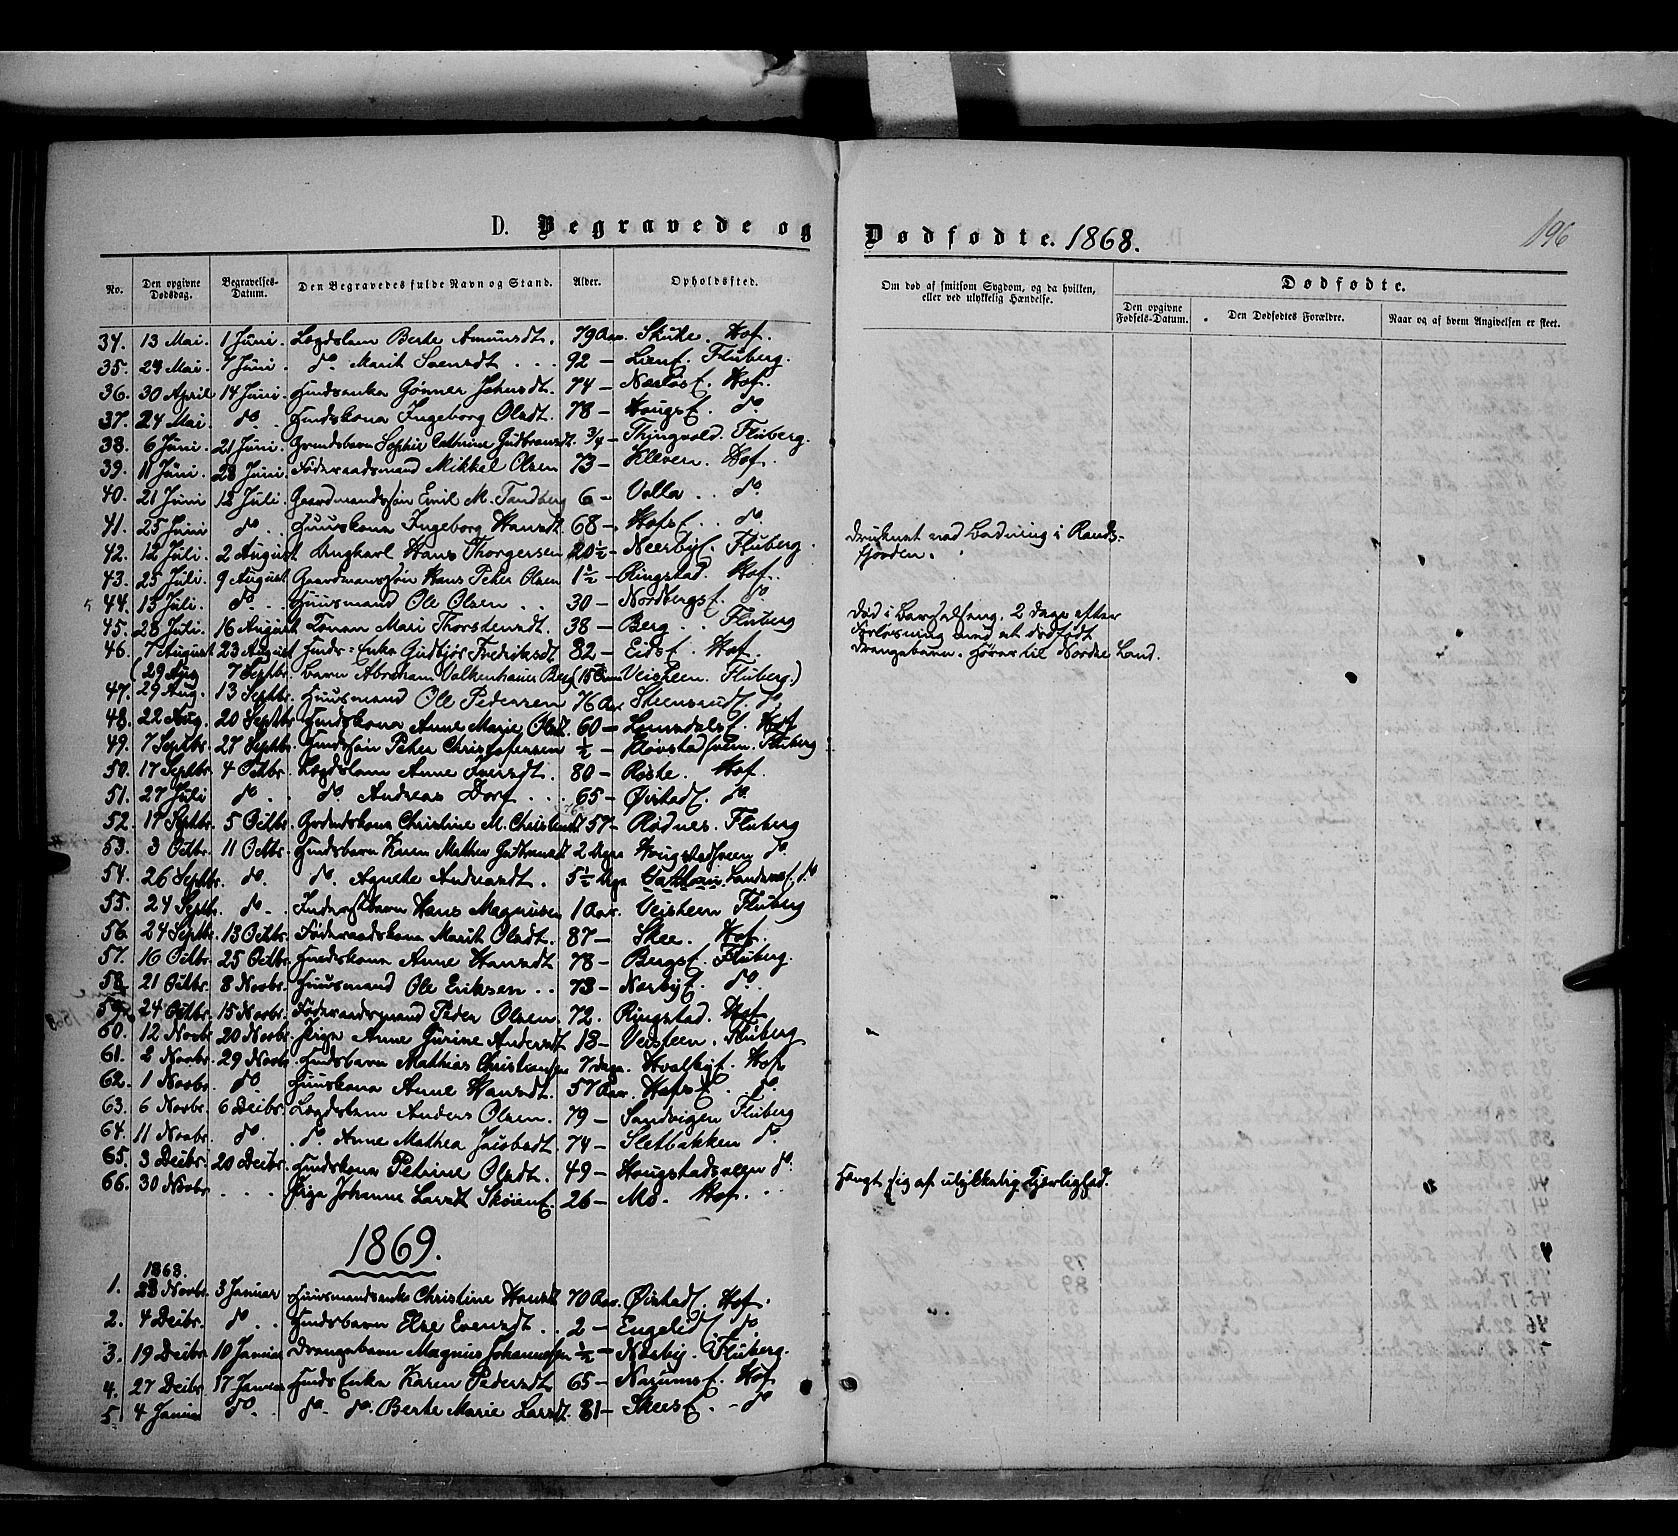 D. Begravede og Dødfødte. 1868.
196
No. Den opgivne Dødsdag. Begravelses-Datum. Den Begravedes fulde Navn og Stand. Alder. Opholdssted. Om død af smitsom Sygdom, og da hvilken, eller ved ulykkelig Hændelse. Dødfødte.
Den opgivne Fødsels-Datum. Den Dødfødtes Forældre. Naar og af hvem Angivelsen er skeet.
34. 13 Mai. 1 Juni. Lægdslem Berte Amundsdt. 79 Aar. Skute. Hof.
35. 24 Mai. 7 Juni. do. Marit Svensdt . . . 92 — Lienf. Fluberg.
36. 30 April 14 Juni. Huusenka Gønner Johnsdt. 74 — Hof.
37. 24 Mai. do. Huuskona Ingeborg Olsdt. 78 — Hougsf. do.
38. 6 Juni. 21 Juni. Grundsbarn Sophie Cathrine Gudbransdt. 3/4 — Thingvold. Fluberg.
39. 11 Juni. 28 Juni. Føderaadsmand Mikkel Olsen 73 — Kleven. Hof.
40. 21 Juni 12 Juli. Gaardmandssøn Emil M. Tandberg 6 — Volla . . do.
41. 25 Juni do. . Huuskona Ingeborg Hansdt 68 — Hofsf. . . do.
42. 12 Juli. 2 August Ungkarl Hans Thorgersen 20½ — Neerbyf. Fluberg. Druknet ved Badning i Randsfjorden.
43. 25 Juli. 9 August Gaardmanssøn Hans Peter Olsen 1½ — Ringstad. Hof.
44. 15 Juli. do. . . Huusmand Ole Olsen . . 30 — Nordbergsf. do.
45. 28 Juli. 16 August Konen Mari Thorstensdt. 38 — Berg . . Fluberg Død i Barselseng, 2 Dage efter Forløsning med et dødfødt Drengebarn. Hører til Nordre Land.
46. 7 August 23 August Huuds-Enke Gudbjør Fredriksdt 82 — Eidsf. Hof.
(29 Aug 7 Septbr. Barn Abraham Valkenhauer Berg (15 Veisteen. Fluberg.)
47. 29 Aug. 13 Septbr. Huusmand Ole Pedersen 76 Aar Steensrud f. do.
48. 22 Aug. 20 Septbr. Huuskona Anne Marie Olsdt. 60 — Lomsdalsf. Hof
49. 7 Septbr. 27 Septbr. Huudssøn Peter Christofersen ½ — Fluberg
50. 17 Septbr. 4 Octbr. Lægdslem Anne Iversdt. 80 — Røste. Hof.
51. 27 Juli do. . do. Andreas Dorf . . . 65 — Øistadf. do.
52. 17 Septbr. 5 Octbr. Christine M. Christensdt 57 — Rødnes. Fluberg
53. 3 Octbr. 11 Octbr. Huudsbarn Karen Mathea Gudbransdt 2 Uger Hougstadsveen do.
54. 26 Septbr. do. do. Agnethe Andersdt. 5½ Uge do
55. 24 Septbr. do. . Inderstbarn Hans Magnusen 1 Aar. Veisteen Fluberg
56. 24 Septbr. 13 Octbr. Føderaadskona Marit Olsdt. 87 — Skee. Hof.
57. 16 Octbr. 25 Octbr. Huuskona Anne Hansdt 78 — Bergsf. Fluberg.
58. 21 Octbr. 8 Novbr. Huusmand Ole Eriksen . . 73 — Nerbyf. do.
59. 24 Octbr. 15 Novbr. Føderaadsmand Peder Olsen 72. Ringstad. Hof
60. 12 Novbr 20 Novbr. Pige Anne Gurine Andersdt 18 — Veisteen. Fluberg
61. 2 Novbr. 29 Novbr. Huudsbarn Mathias Christiansen 7 Dage. Hvalbyf. Hof
62. 1 Novbr. do. Huuskona Anne Hansdt. 57 Aar. Hofsf. do.
63. 6 Novbr. 6 Decbr. Lægdslem Anders Olsen. 79 — Sandvigen Fluberg
64. 11 Novbr. do. . do. Anne Mathea Jacobsdt. 74 — Sletbakken do.
65. 3 Decbr. 20 Decbr. Huuskona Petrine Olsdt. 49 — Hougstadsveen do.
66. 30 Novbr. . . . Pige Johanne Larsdt Skøienf. 26 — Mo. Hof. . . Hængt sig af ulykkelig Kjærlighed.
1869.
1868.
1. 23 Novbr. 3 Januar Huusmandsenke Christine Hansdt 70 Aar. Øistadf. Hof.
2. 4 Decbr. do. . . Huudsbarn Else Evensdt . . 2 — Engelidf. do
3. 19 Decbr. 10 Januar Drengebarn Magnus Johannesen ½ — Nærby. Fluberg.
4. 27 Decbr. 17 Januar Huuds Enke Karen Pedersdt 65 — Narumsf. Hof
5. 4 Januar do. . do. do. Berte Marie Larsdt. 81 — Skeesf. . . do